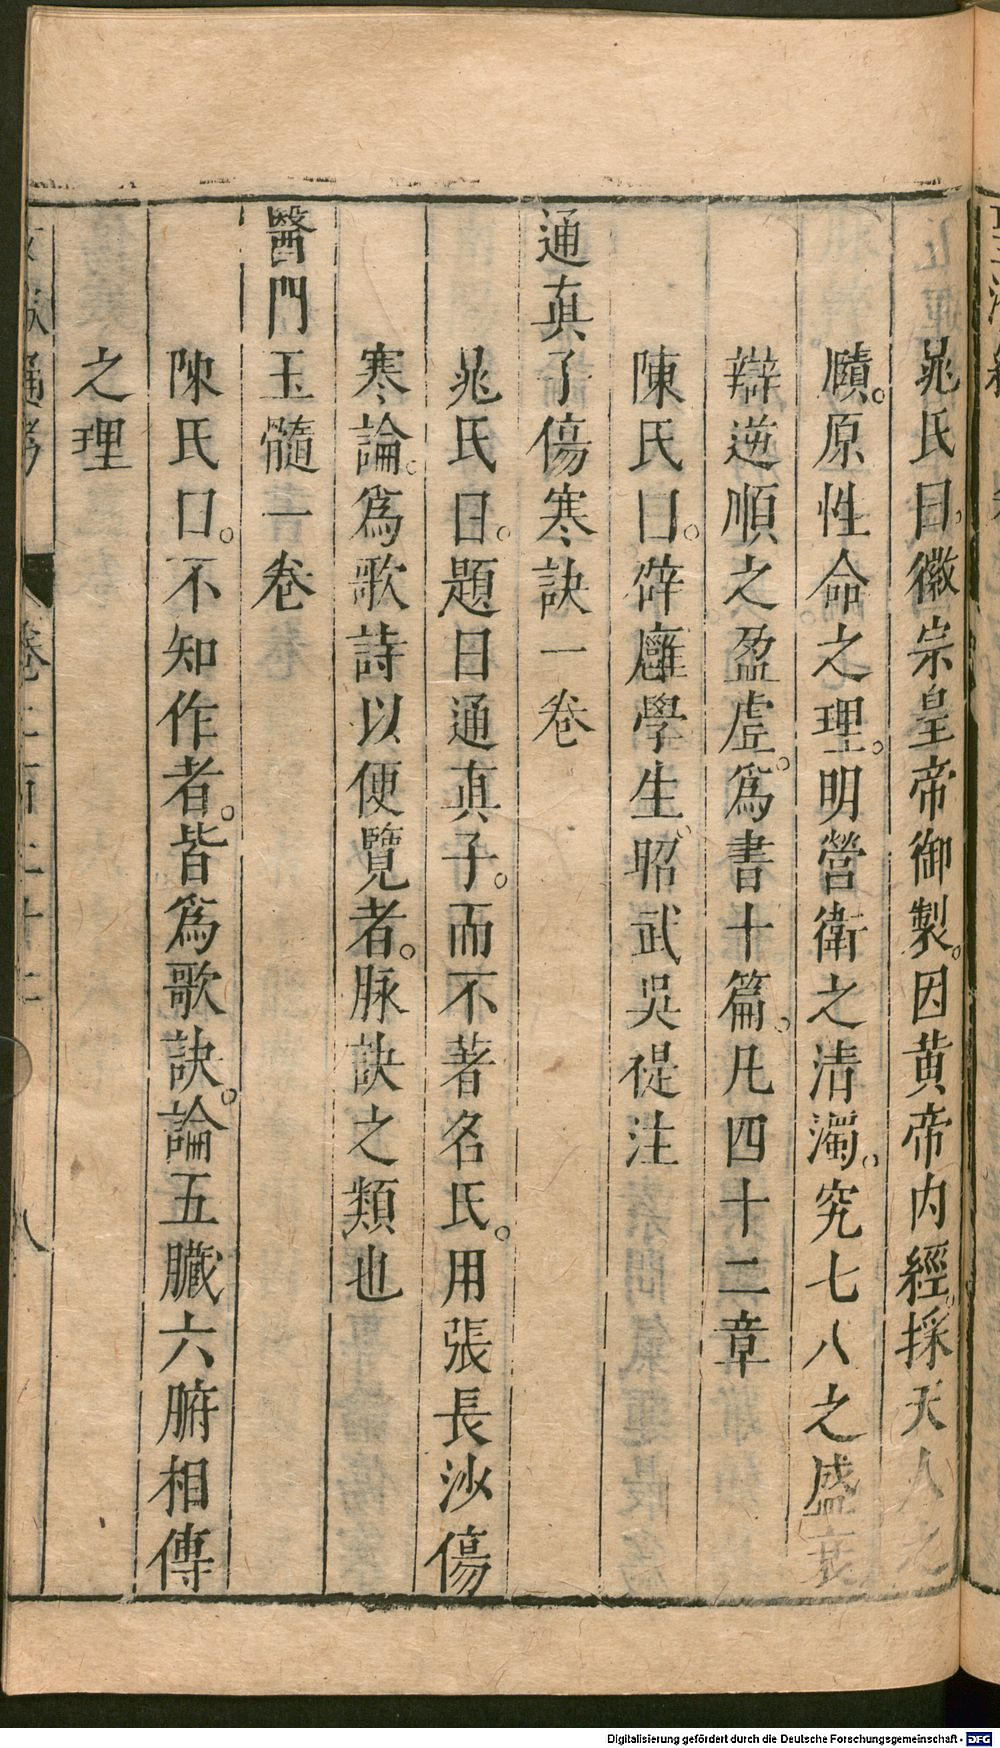 晁氏曰徽宗皇帝御製。因黄帝内經。採天人之
賾。原性命之理。明營衛之清濁。究七八之盛衰
辯逆順之盈虛。爲書十篇。凡四十二章
陳氏曰。辟廱學生。昭武吳禔注
通真子傷寒訣一卷
晁氏曰。題曰通真子。而不著名氏。用張長沙傷
寒論。爲歌詩以便覽者。脉訣之類也
醫門玉髓一卷
陳氏曰。不知作者。皆爲歌訣。論五臟六腑相傳
之理
通考 卷二百二十二 八
Digitalisierung gefördert durch die Deutsche Forschungsgemeinschaft - DFG